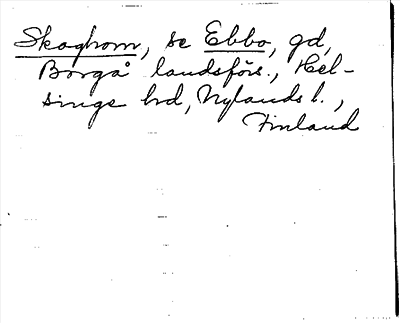 Skaghorn, se Ebbo, gd,
Borgå landsförs., Hel-
singe hrd, Nylands l.,
Finland